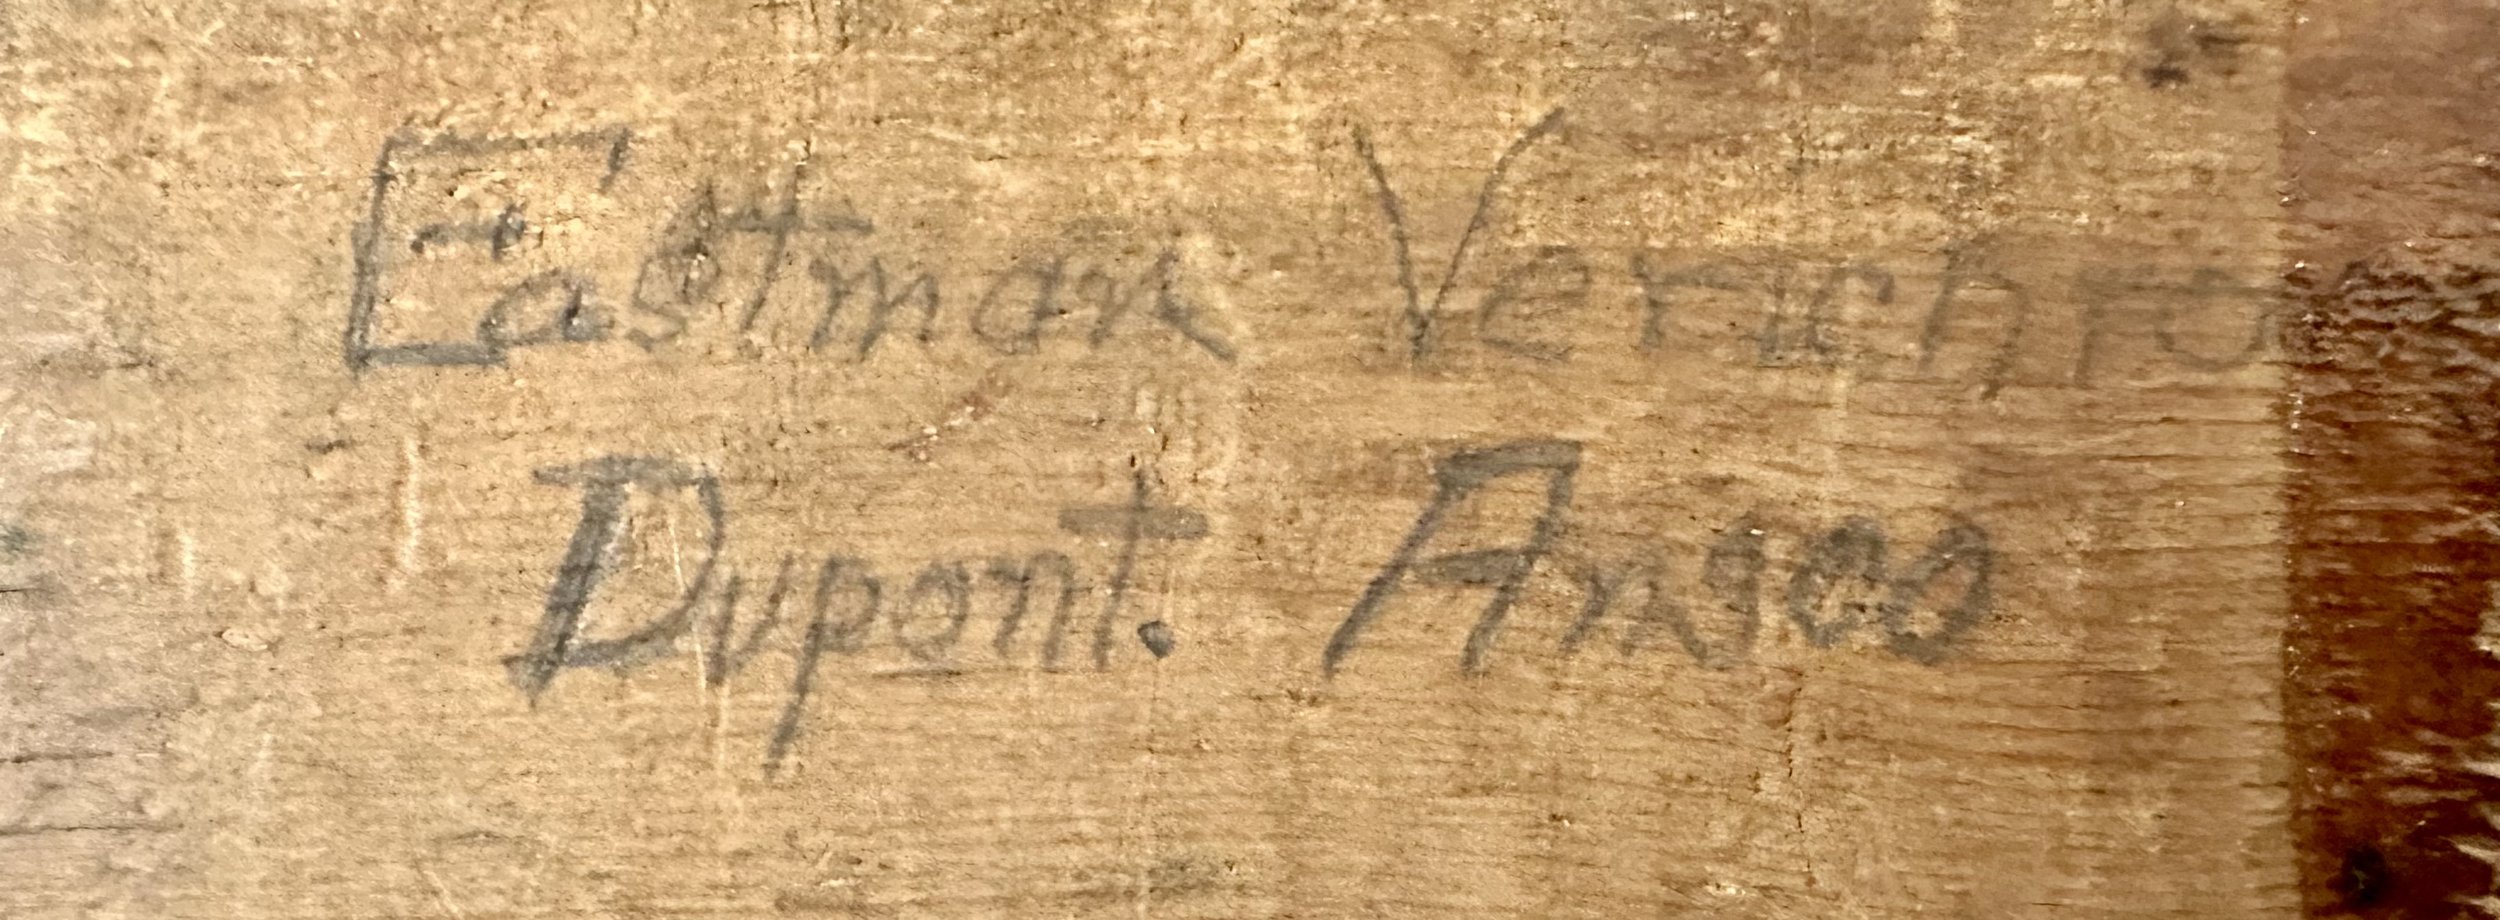 Eastman Verichro
Dupont. Ansco